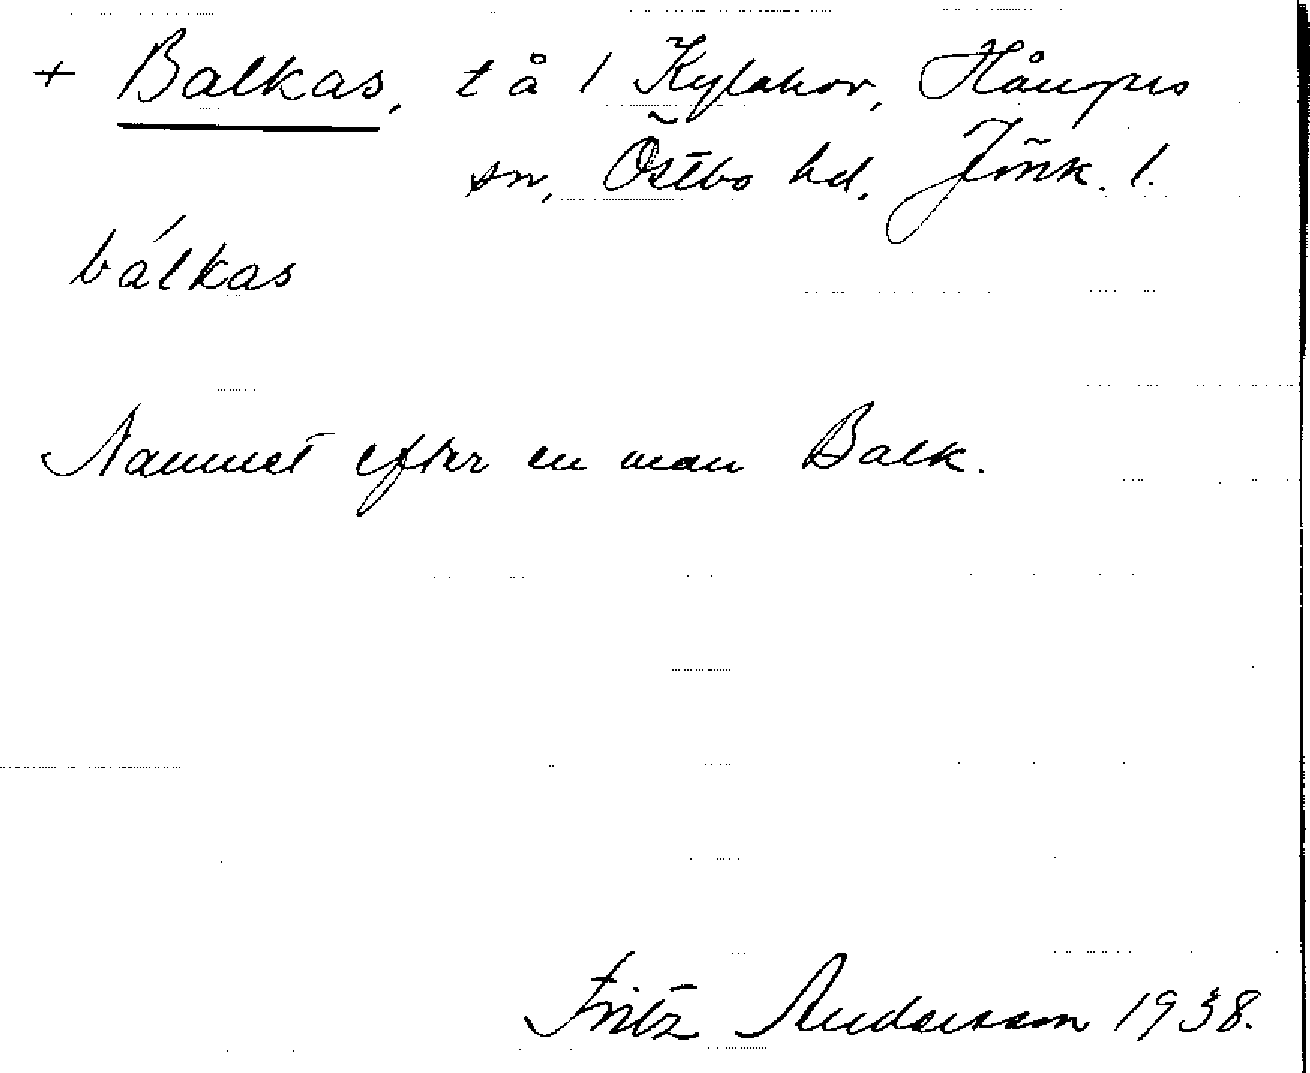 + Balkas, t å 1 Kylahov, Hångers
sn, Östbo hd. Jönk. l.
bálkas
Namnet efter en man Balk.
Fritz Andersson 1938.